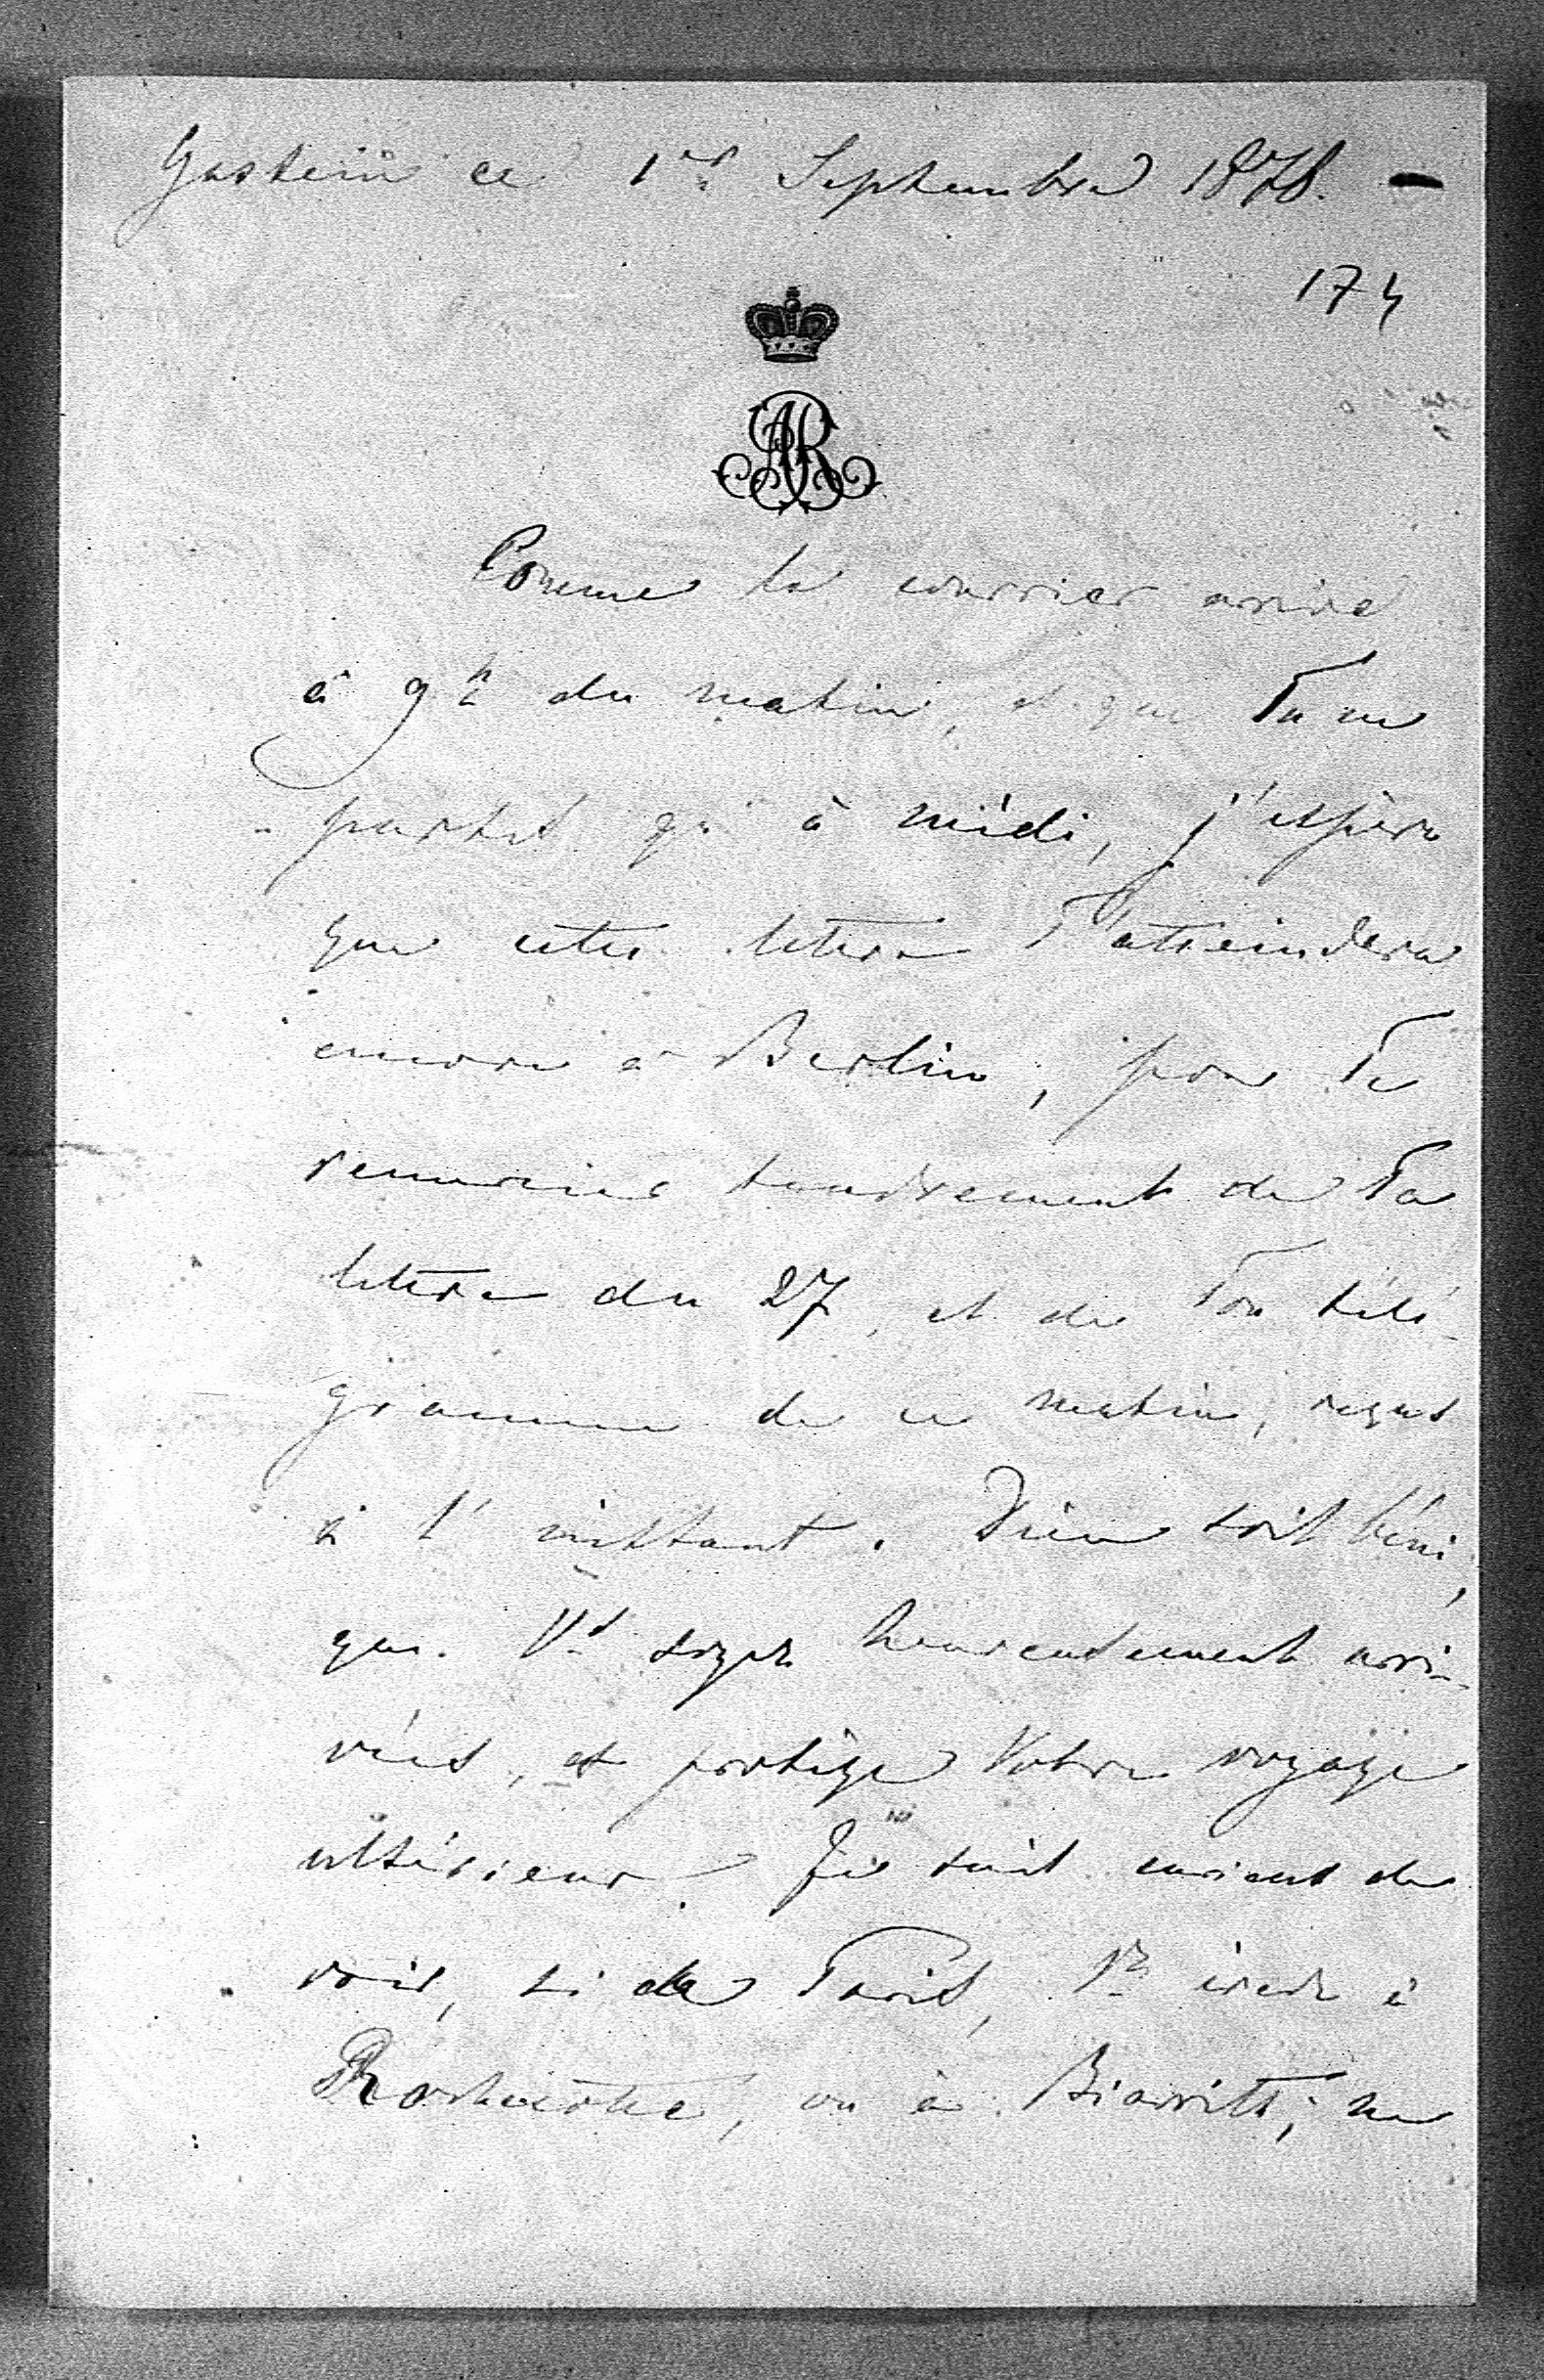 Gastein ce 1er Septembre 1878. —
174
AR
Comme le courrier arrive
à 9h du matin, et que Tu ne
parts qu'à midi, j'espère
que cette lettre T'atteindera
encore à Berlin, pour Te
remercier tendrement de Ta
lettre du 27, et de Ton télé-
gramme de ce matin, reçus
à l'instant. Dieu soit béni,
que Vs soyez heureusement arri-
vés, et protège Votre voyage
ultérieur. Je suis curieux de
voir, si de Paris, Vs irez à
Rochecotte, ou à Biarritz; ne